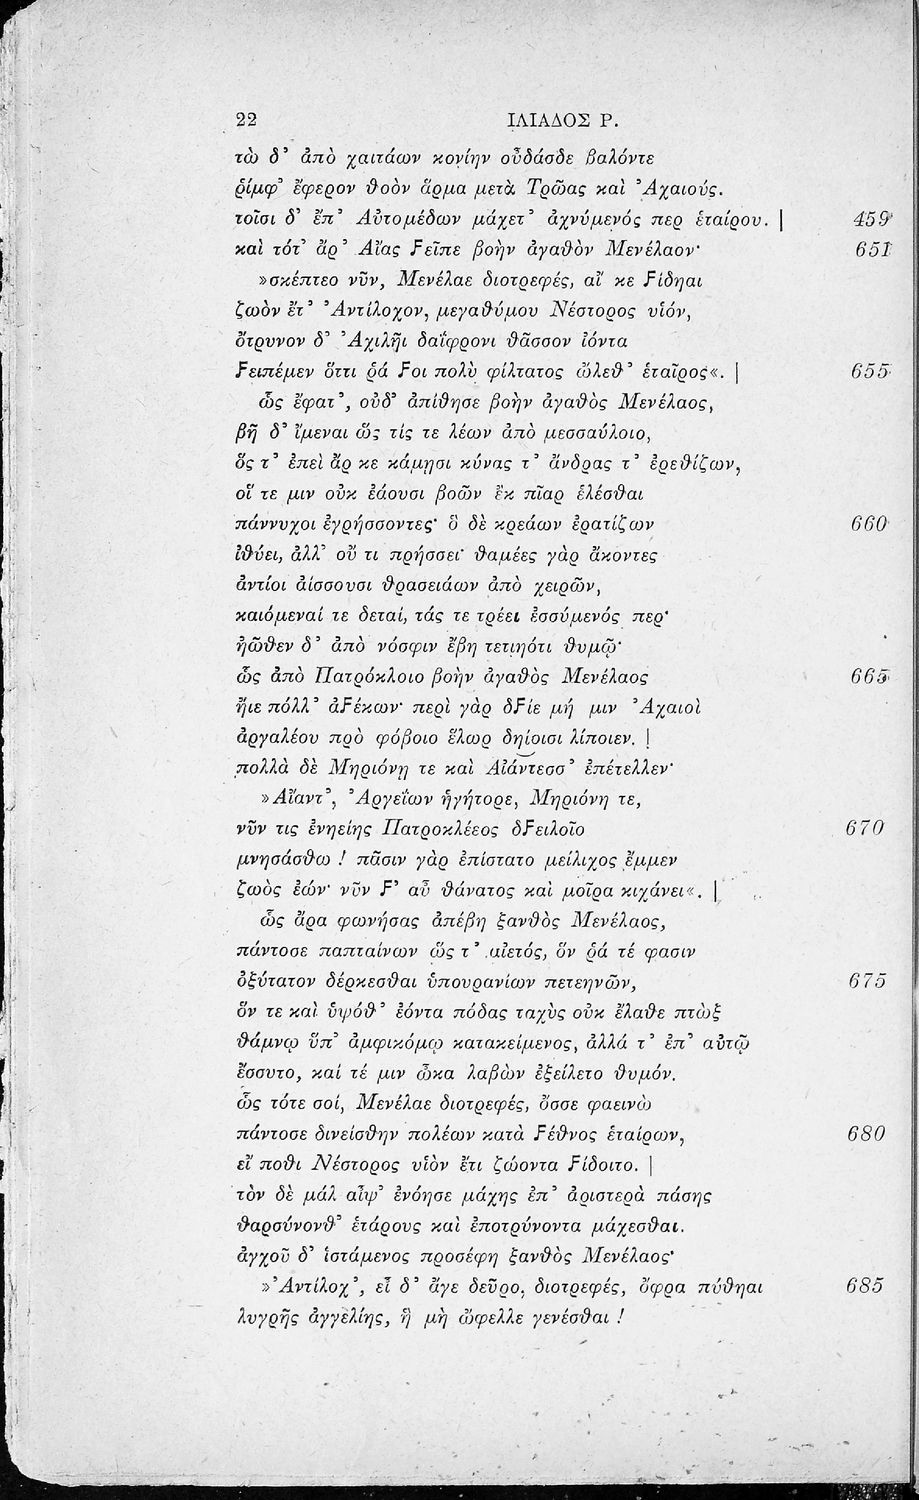 22 ΙΛΙΑΔΟΣ Ρ.
τὼ δ’ ἀπὸ χαιτάων κονίην οὖδάσδε βαλόντε
ῥίμφ’ ἔφερον θοὸν ἅρμα μετὰ Τρῶας καὶ Ἀχαιούς.
τοῖσι δ’ ἔπ’ Αὐτομέδων μάχετ’ ἀχνύμενός περ ἑταίρου. | 459
καὶ τότ’ ἄρ’ Αἴας ϝεῖπε βοὴν ἀγαθὸν Μενέλαον· 651
»σκέπτεο νῦν, Μενέλαε διοτρεφές, αἴ κε ϝίδηαι
ζωὸν ἔτ’ Ἀντίλοχον, μεγαθύμου Νέστορος υἱόν,
ὄτρυνον δ’ Ἀχιλῆι δαΐφρονι θᾶσσον ἰόντα
ϝειπέμεν ὅττι ῥά ϝοι πολὺ φίλτατος ὤλεθ’ ἑταῖρος«. | 655
ὣς ἔφατ’, οὐδ’ ἀπίθησε βοὴν ἀγαθὸς Μενέλαος,
βῆ δ’ ἴμεναι ὥς τίς τε λέων ἀπὸ μεσσαύλοιο,
ὅς τ’ ἐπεὶ ἄρ κε κάμησι κύνας τ’ ἄνδρας τ’ ἐρεθίζων,
οἵ τε μιν οὐκ ἐάουσι βοῶν ἒκ πῖαρ ἑλέσθαι
πάννυχοι ἐγρήσσοντες· ὃ δὲ κρεάων ἐρατίζων 660
ἰθύει, ἀλλ’ οὔ τι πρήσσει· θαμέες γὰρ ἄκοντες
ἀντίοι ἀίσσουσι θρασειάων ἀπὸ χειρῶν,
καιόμεναί τε δεταί, τάς τε τρέει ἐσσύμενός περ·
ἠῶθεν δ’ ἀπὸ νόσφιν ἔβη τετιηότι θυμῷ·
ὣς ἀπὸ Πατρόκλοιο βοὴν ἀγαθὸς Μενέλαος 665
ἤιε πόλλ’ ἀϝέκων· περὶ γὰρ δϝίε μή μιν Ἀχαιοὶ
ἀργαλέου πρὸ φόβοιο ἕλωρ δηίοισι λίποιεν. |
πολλὰ δὲ Μηριόνῃ τε καὶ Αἰάντεσσ’ ἐπέτελλεν·
»Αἴαντ’, Ἀργεΐων ἡγήτορε, Μηριόνη τε,
νῦν τις ἐνηείης Πατροκλέεος δϝειλοῖο 670
μνησάσθω! πᾶσιν γὰρ ἐπίστατο μείλιχος ἔμμεν
ζωὸς ἐών· νῦν ϝ’ αὖ θάνατος καὶ μοῖρα κιχάνει«. |
ὣς ἄρα φωνήσας ἀπέβη ξανθὸς Μενέλαος,
πάντοσε παπταίνων ὥς τ’ αἰετός, ὅν ῥά τέ φασιν
ὀξύτατον δέρκεσθαι ὑπουρανίων πετεηνῶν, 675
ὅν τε καὶ ὑψόθ’ ἐόντα πόδας ταχὺς οὐκ ἔλαθε πτὼξ
θάμνῳ ὕπ’ ἀμφικόμῳ κατακείμενος, ἀλλά τ’ ἐπ’ αὐτῷ
ἔσσυτο, καί τέ μιν ὦκα λαβὼν ἐξείλετο θυμόν.
ὣς τότε σοί, Μενέλαε διοτρεφές, ὄσσε φαεινὼ
πάντοσε δινείσθην πολέων κατὰ ϝέθνος ἑταίρων, 680
εἴ ποθι Νέστορος υἱὸν ἔτι ζώοντα ϝίδοιτο. |
τὸν δὲ μάλ αἶψ’ ἐνόησε μάχης ἐπ’ ἀριστερὰ πάσης
θαρσύνονθ’ ἑτάρους καὶ ἐποτρύνοντα μάχεσθαι.
ἀγχοῦ δ’ ἱστάμενος προσέφη ξανθὸς Μενέλαος·
»Ἀντίλοχ’, εἶ δ’ ἄγε δεῦρο, διοτρεφές, ὄφρα πύθηαι 685
λυγρῆς ἀγγελίης, ἣ μὴ ὤφελλε γενέσθαι!